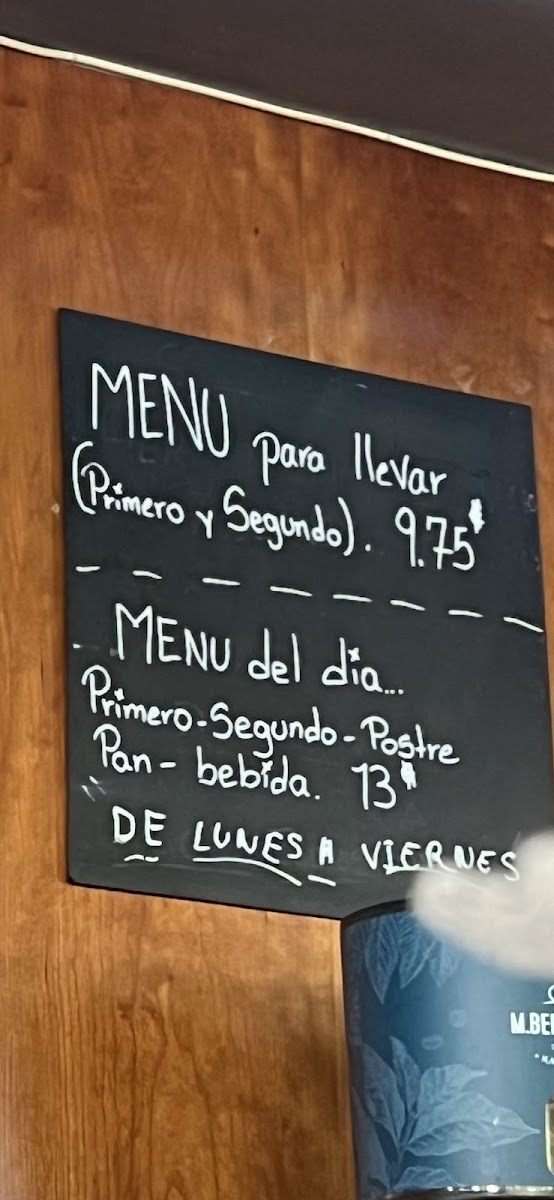 MENU para llevar
(Primero y Segundo). 9.75€
MENU del dia...
Primero-Segundo-Postre
Pan - bebida. 13€
DE LUNES A VIERNES